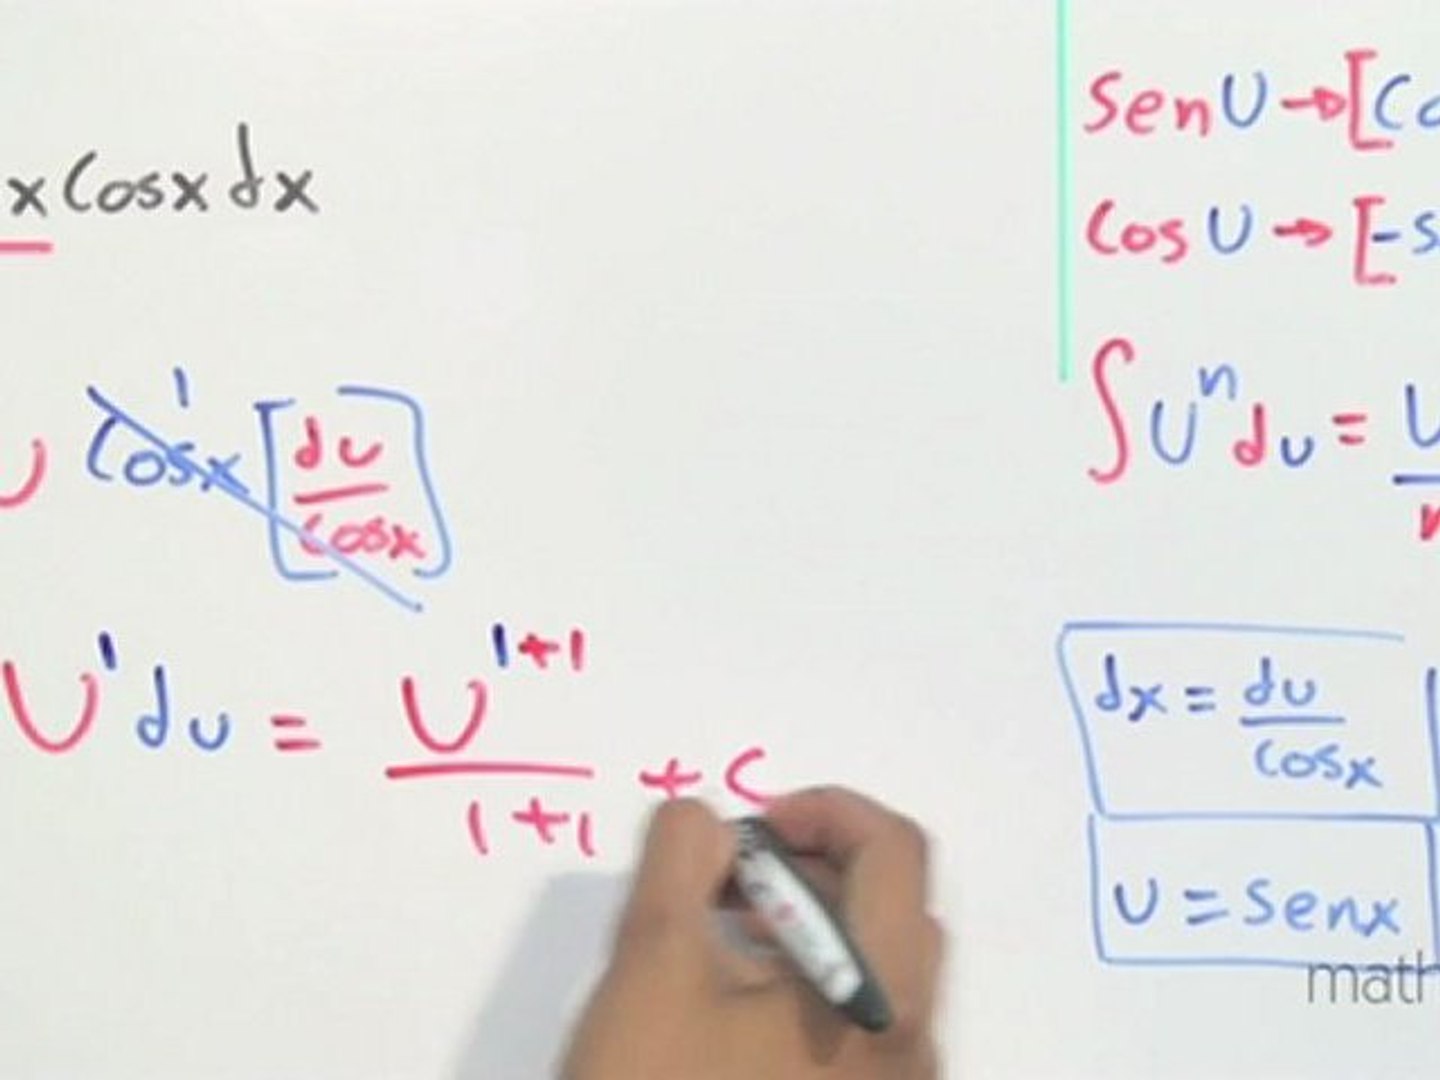 x Cosx dx
U Cosx [du/cosx]
1
U¹ du = U¹⁺¹/1+1 + C
Sen U → [Co
Cos U → [-s
∫Uⁿ du = U
dx = du/Cosx
U = Senx
math